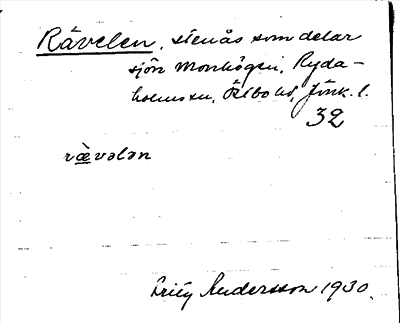 Rävelen, stenås som delar
sjön Morrhögen, Ryda-
holms sn, Ölbo hd, Jönk. l.
32
rævələn
Andersson 1930.